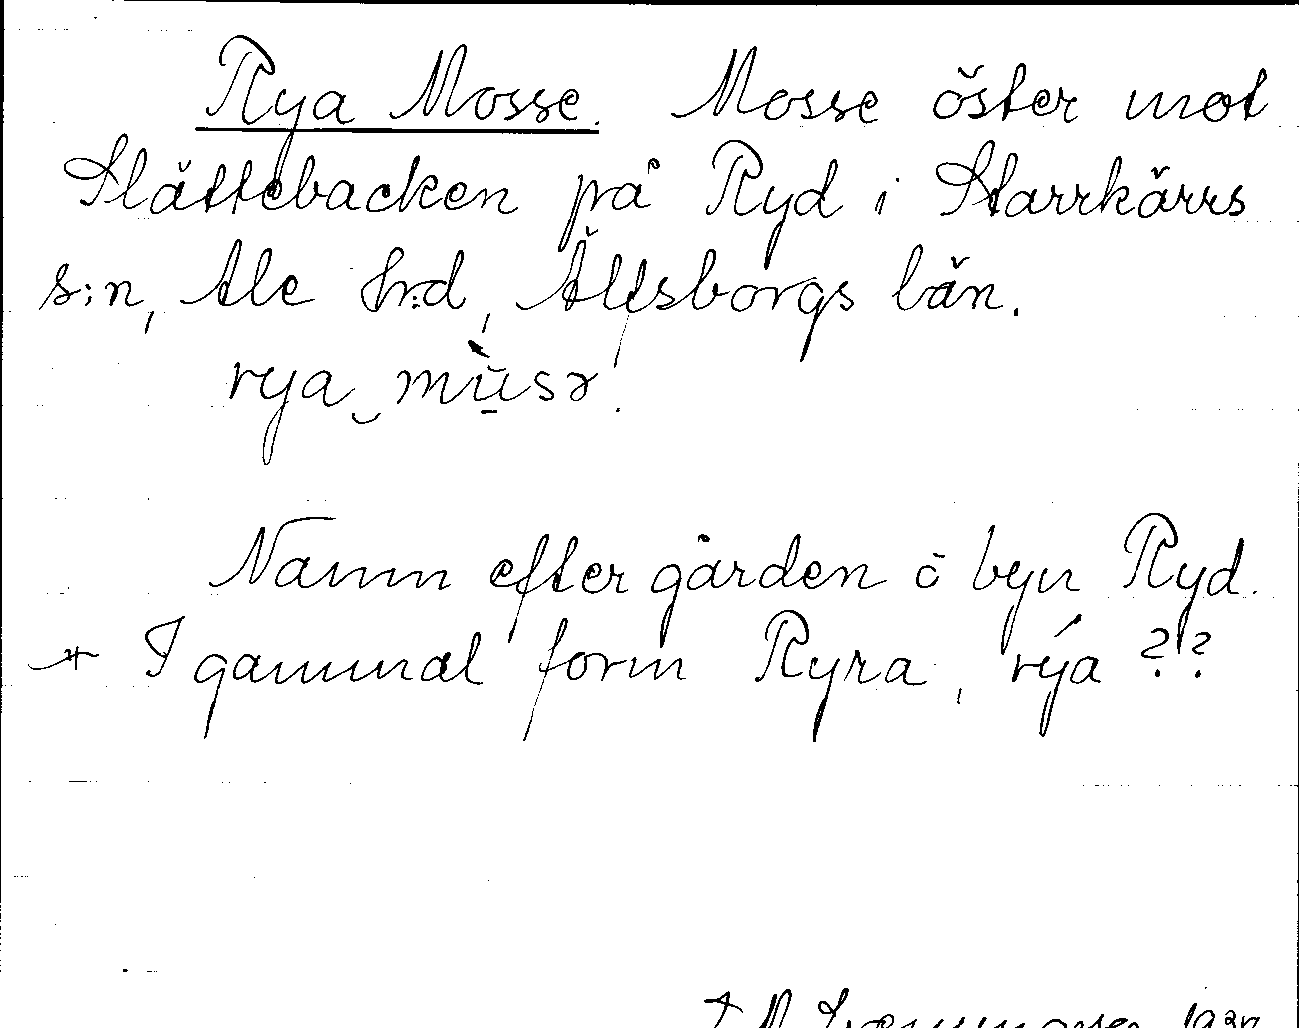 Rya Mosse. Mosse öster mot
Slättebacken på Ryd i Starrkärrs
s:n, Ale hrd, Älfsborgs län.
rya mùsə.
Namn efter gården o byn Ryd.
I gammal form Ryra, rýa ??